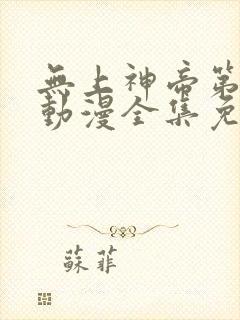 無上神帝第
動漫全集免
蘇菲